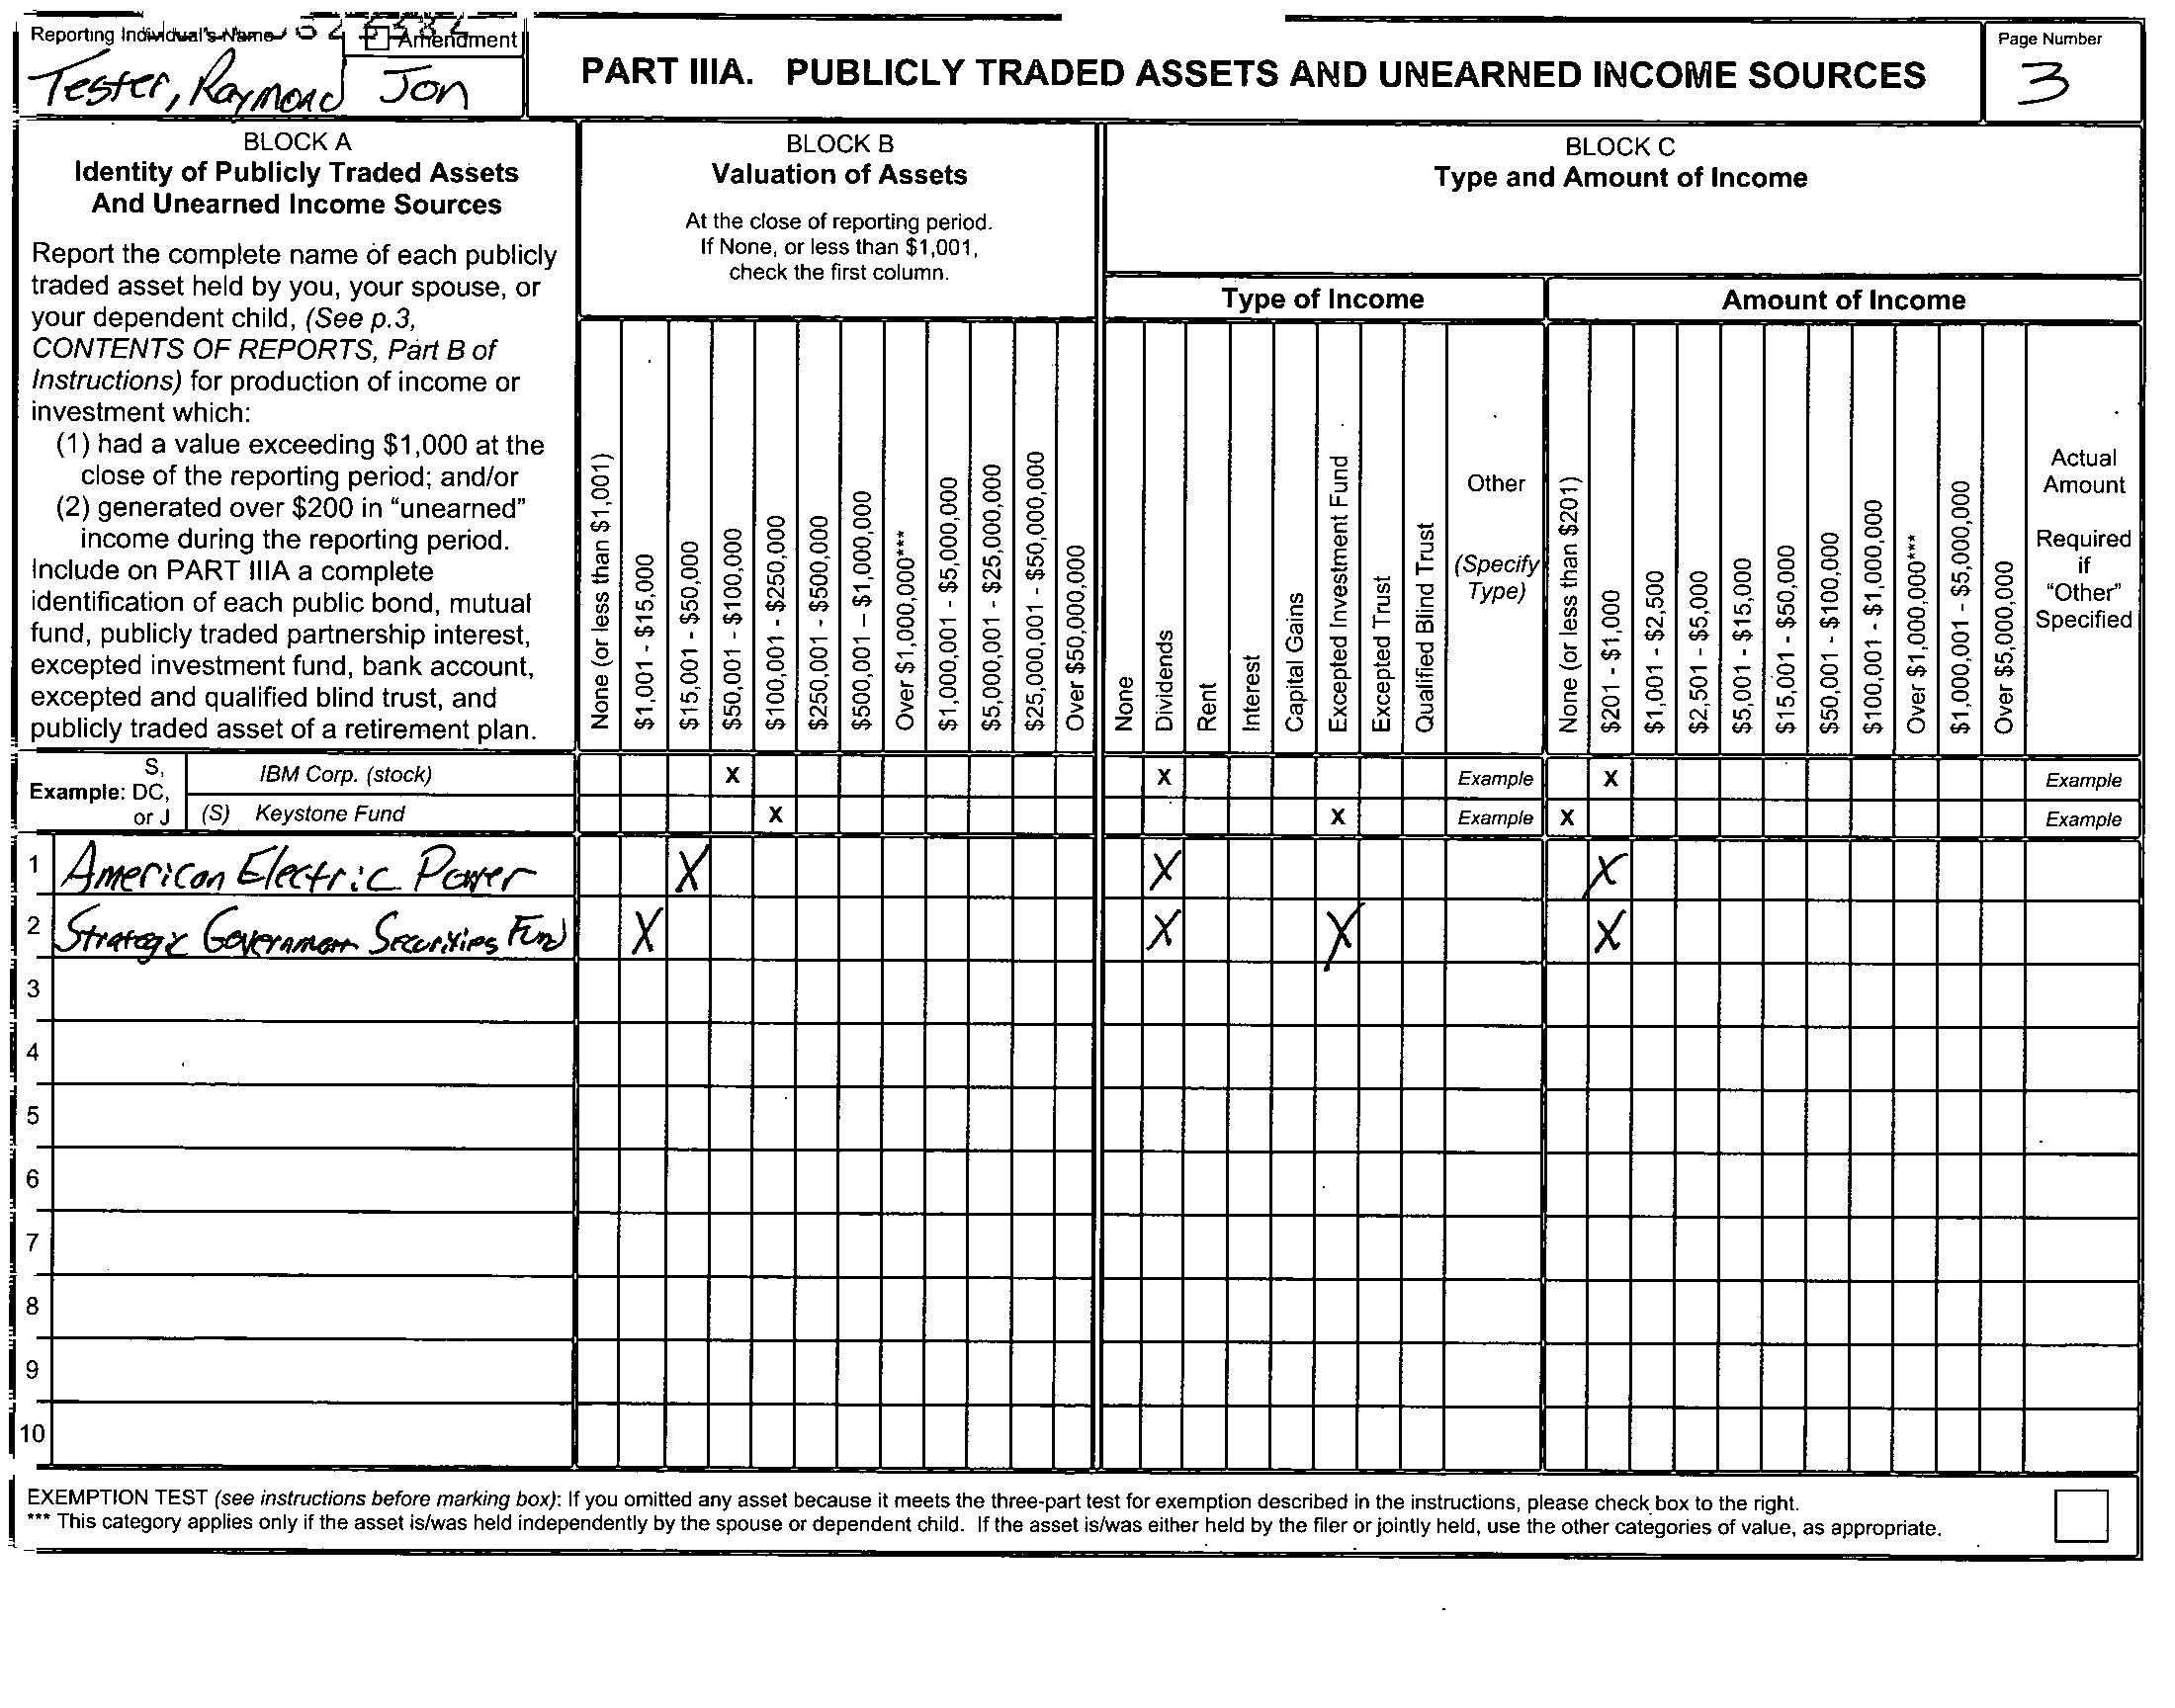 Reporting Individual's Name
Amendment
Tester, Raymond Jon
PART IIIA. PUBLICLY TRADED ASSETS AND UNEARNED INCOME SOURCES
Page Number
3
BLOCK A
Identity of Publicly Traded Assets
And Unearned Income Sources
Report the complete name of each publicly
traded asset held by you, your spouse, or
your dependent child, (See p.3,
CONTENTS OF REPORTS, Part B of
Instructions) for production of income or
investment which:
(1) had a value exceeding $1,000 at the
close of the reporting period; and/or
(2) generated over $200 in “unearned”
income during the reporting period.
Include on PART IIIA a complete
identification of each public bond, mutual
fund, publicly traded partnership interest,
excepted investment fund, bank account,
excepted and qualified blind trust, and
publicly traded asset of a retirement plan.
BLOCK B
Valuation of Assets
At the close of reporting period.
If None, or less than $1,001,
check the first column.
None (or less than $1,001)
$1,001 - $15,000
$15,001 - $50,000
$50,001 - $100,000
$100,001 - $250,000
$250,001 - $500,000
$500,001 – $1,000,000
Over $1,000,000***
$1,000,001 - $5,000,000
$5,000,001 - $25,000,000
$25,000,001 - $50,000,000
Over $50,000,000
BLOCK C
Type and Amount of Income
Type of Income
None
Dividends
Rent
Interest
Capital Gains
Excepted Investment Fund
Excepted Trust
Qualified Blind Trust
Other
(Specify
Type)
Amount of Income
None (or less than $201)
$201 - $1,000
$1,001 - $2,500
$2,501 - $5,000
$5,001 - $15,000
$15,001 - $50,000
$50,001 - $100,000
$100,001 - $1,000,000
Over $1,000,000***
$1,000,001 - $5,000,000
Over $5,000,000
Actual
Amount
Required
if
“Other”
Specified
Example: S, DC, or J
IBM Corp. (stock) X X Example X Example
(S) Keystone Fund X X Example X Example
1 American Electric Power X X X
2 Strategic Government Securities Fund X X X X
3
4
5
6
7
8
9
10
EXEMPTION TEST (see instructions before marking box): If you omitted any asset because it meets the three-part test for exemption described in the instructions, please check box to the right.
*** This category applies only if the asset is/was held independently by the spouse or dependent child. If the asset is/was either held by the filer or jointly held, use the other categories of value, as appropriate.